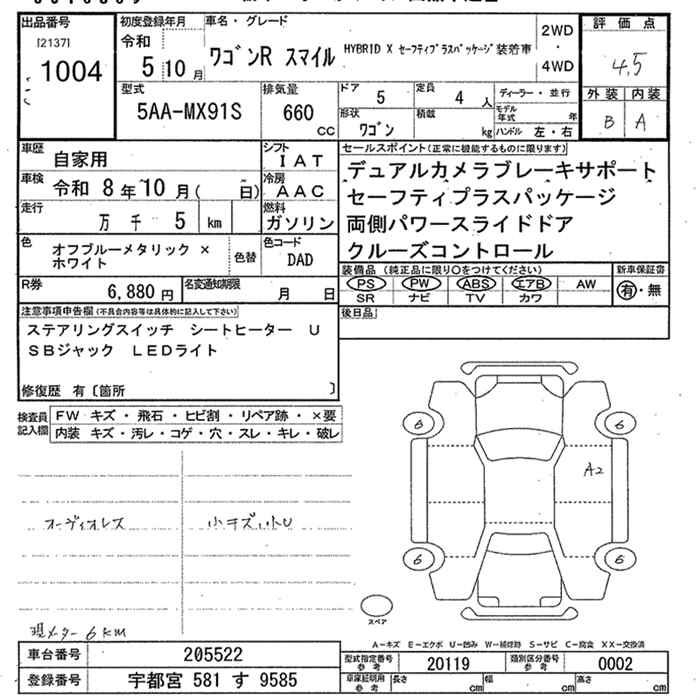 出品番号
[2137]
1004
初度登録年月
令和
5 10 月
車名・グレード
ワゴンR スマイル HYBRID X セーフティプラスパッケージ装着車
2WD
・
4WD
評価点
4.5
外装 内装
B A
型式
5AA-MX91S
排気量
660 cc
ドア 5
定員 4 人
ディーラー・並行
形状 ワゴン
積載 kg
モデル年式 年
ハンドル 左・右
車歴 自家用
シフト IAT
車検 令和 8年10月( 日)
冷房 AAC
走行 万 千 5 km
燃料 ガソリン
色 オフブルーメタリック × ホワイト
色替
色コード DAD
R券 6,880 円
名変通知期限 月 日
セールスポイント(正常に機能するものに限ります)
デュアルカメラブレーキサポート
セーフティプラスパッケージ
両側パワースライドドア
クルーズコントロール
装備品(純正品に限り○をつけてください)
PS PW ABS エアB AW
SR ナビ TV カワ
新車保証書
有・無
後日品
注意事項申告欄(不具合内容等は具体的に記入して下さい)
ステアリングスイッチ シートヒーター U
SBジャック LEDライト
修復歴 有〔箇所 〕
検査員記入欄
FW キズ・飛石・ヒビ割・リペア跡・×要
内装 キズ・汚レ・コゲ・穴・スレ・キレ・破レ
オーディオレス
小キズ
現メーター 6KM
6
6
A2
6
6
スペア
A-キズ E-エクボ U-凹み W-補修跡 S-サビ C-腐食 XX-交換済
車台番号 205522
登録番号 宇都宮 581 す 9585
型式指定番号 参考 20119
類別区分番号 参考 0002
車庫証明用 参考 長さ cm 幅 cm 高さ cm